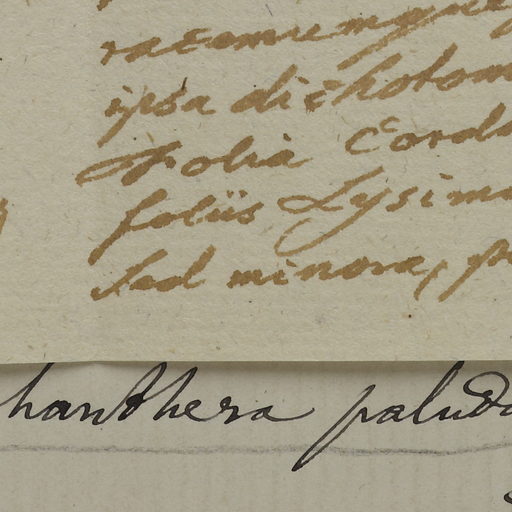 ramumque
ipsa dichotom
Folia Cord
foliis Lysima
Sed minora, p
hanthera paludo